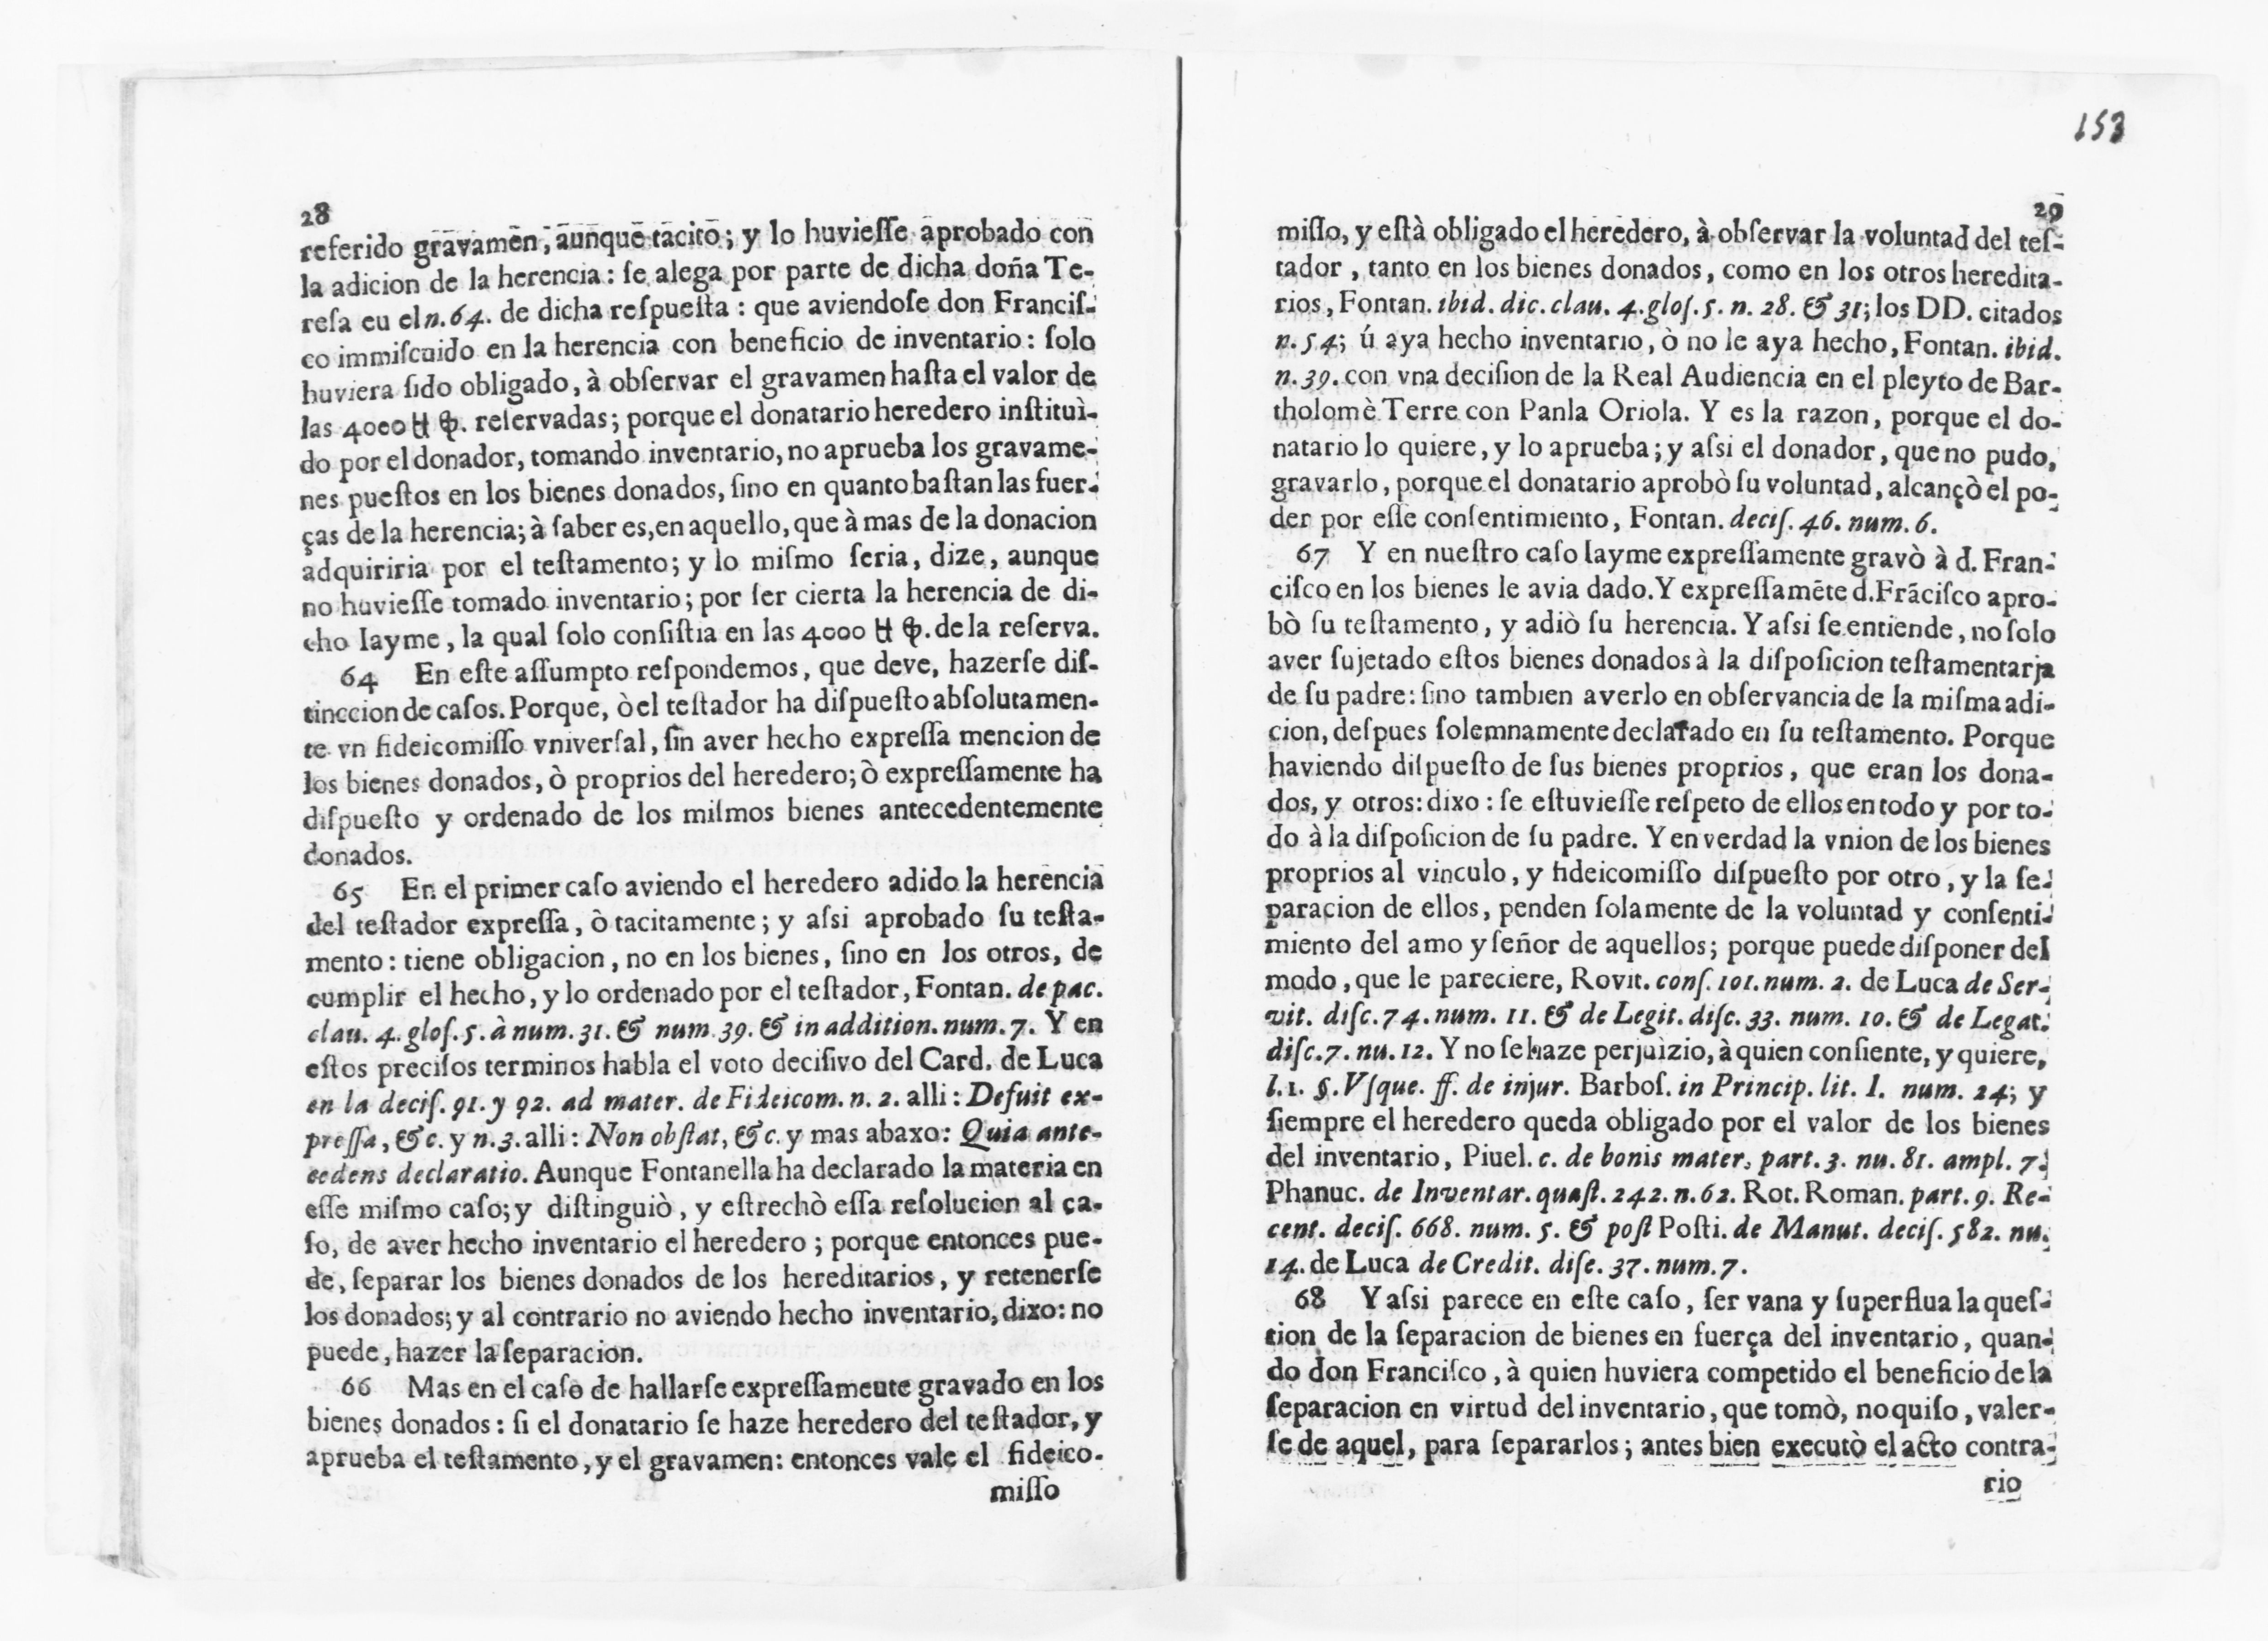 28
referido gravamen, aunque tacito; y lo huvieſſe aprobado con
la adicion de la herencia: ſe alega por parte de dicha doña Te-
reſa eu el n. 64. de dicha reſpueſta: que aviendoſe don Franciſ-
co immiſcuido en la herencia con beneficio de inventario: ſolo
huviera ſido obligado, à obſervar el gravamen haſta el valor de
las 4000 reſervadas; porque el donatario heredero inſtituì-
do por el donador, tomando inventario, no aprueba los gravame-
nes pueſtos en los bienes donados, ſino en quanto baſtan las fuer-
ças de la herencia; à ſaber es, en aquello, que à mas de la donacion
adquiriria por el teſtamento; y lo miſmo ſeria, dize, aunque
no huvieſſe tomado inventario; por ſer cierta la herencia de di-
cho Iayme, la qual ſolo conſiſtia en las 4000 de la reſerva.
64 En eſte aſſumpto reſpondemos, que deve, hazerſe diſ-
tinccion de caſos. Porque, ò el teſtador ha diſpueſto abſolutamen-
te vn fideicomiſſo vniverſal, ſin aver hecho expreſſa mencion de
los bienes donados, ò proprios del heredero; ò expreſſamente ha
diſpueſto y ordenado de los miſmos bienes antecedentemente
donados.
65 En el primer caſo aviendo el heredero adido la herencia
del teſtador expreſſa, ò tacitamente; y aſsi aprobado ſu teſta-
mento: tiene obligacion, no en los bienes, ſino en los otros, de
cumplir el hecho, y lo ordenado por el teſtador, Fontan. de pac.
clau. 4. gloſ. 5. à num. 31. & num. 39. & in addition. num. 7. Y en
eſtos preciſos terminos habla el voto deciſivo del Card. de Luca
en la deciſ. 91. y 92. ad mater. de Fideicom. n. 2. alli: Defuit ex-
preſſa, &c. y n. 3. alli: Non obſtat, &c. y mas abaxo: Quia ante-
cedens declaratio. Aunque Fontanella ha declarado la materia en
eſſe miſmo caſo; y diſtinguiò, y eſtrechò eſſa reſolucion al ca-
ſo, de aver hecho inventario el heredero; porque entonces pue-
de, ſeparar los bienes donados de los hereditarios, y retenerſe
los donados; y al contrario no aviendo hecho inventario, dixo: no
puede, hazer la ſeparacion.
66 Mas en el caſo de hallarſe expreſſameute gravado en los
bienes donados: ſi el donatario ſe haze heredero del teſtador, y
aprueba el teſtamento, y el gravamen: entonces vale el fideico-
miſſo
153
29
miſſo, y eſtà obligado el heredero, à obſervar la voluntad del teſ-
tador, tanto en los bienes donados, como en los otros heredita-
rios, Fontan. ibid. dic. clau. 4. gloſ. 5. n. 28. & 31; los DD. citados
n. 54; ú aya hecho inventario, ò no le aya hecho, Fontan. ibid.
n. 39. con vna deciſion de la Real Audiencia en el pleyto de Bar-
tholomè Terre con Panla Oriola. Y es la razon, porque el do-
natario lo quiere, y lo aprueba; y aſsi el donador, que no pudo,
gravarlo, porque el donatario aprobò ſu voluntad, alcançò el po-
der por eſſe conſentimiento, Fontan. deciſ. 46. num. 6.
67 Y en nueſtro caſo Iayme expreſſamente gravò à d. Fran-
ciſco en los bienes le avia dado. Y expreſſamẽte d. Frãciſco apro-
bò ſu teſtamento, y adiò ſu herencia. Y aſsi ſe entiende, no ſolo
aver ſujetado eſtos bienes donados à la diſpoſicion teſtamentarja
de ſu padre: ſino tambien averlo en obſervancia de la miſma adi-
cion, deſpues ſolemnamente declarado en ſu teſtamento. Porque
haviendo diſpueſto de ſus bienes proprios, que eran los dona-
dos, y otros: dixo: ſe eſtuvieſſe reſpeto de ellos en todo y por to-
do à la diſpoſicion de ſu padre. Y en verdad la vnion de los bienes
proprios al vinculo, y fideicomiſſo diſpueſto por otro, y la ſe-
paracion de ellos, penden ſolamente de la voluntad y conſenti-
miento del amo y ſeñor de aquellos; porque puede diſponer del
modo, que le pareciere, Rovit. conſ. 101. num. 2. de Luca de Ser-
vit. diſc. 74. num. 11. & de Legit. diſc. 33. num. 10. & de Legat.
diſc. 7. nu. 12. Y no ſe haze perjuìzio, à quien conſiente, y quiere,
l. 1. §. Vſque. ff. de injur. Barboſ. in Princip. lit. I. num. 24; y
ſiempre el heredero queda obligado por el valor de los bienes
del inventario, Piuel. c. de bonis mater, part. 3. nu. 81. ampl. 7.
Phanuc. de Inventar. quæſt. 242. n. 62. Rot. Roman. part. 9. Re-
cent. deciſ. 668. num. 5. & poſt Poſti. de Manut. deciſ. 582. nu.
14. de Luca de Credit. diſc. 37. num. 7.
68 Y aſsi parece en eſte caſo, ſer vana y ſuperflua la queſ-
tion de la ſeparacion de bienes en fuerça del inventario, quan-
do don Franciſco, à quien huviera competido el beneficio de la
ſeparacion en virtud del inventario, que tomò, no quiſo, valer-
ſe de aquel, para ſepararlos; antes bien executò el acto contra-
rio